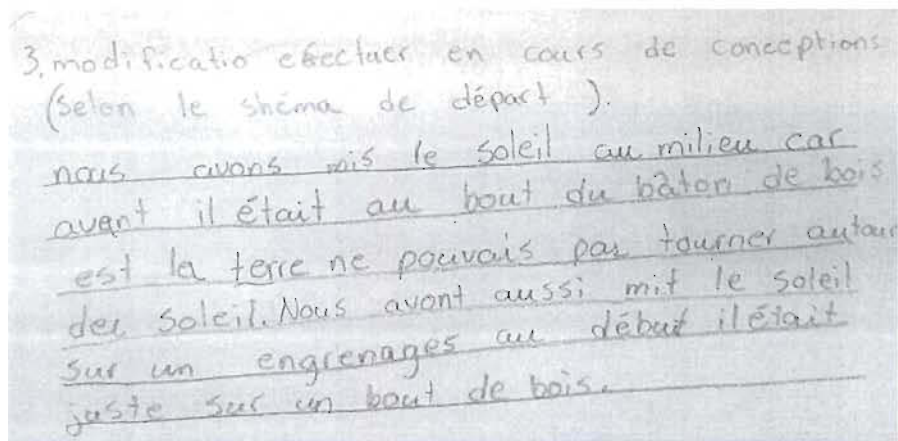 3. modificatio efectuer en cours de conceptions
(Selon le shéma de départ).
nous avons mis le soleil au milieu car
avant il était au bout du bâton de bois
est la terre ne pouvais pas tourner autour
deu soleil. Nous avont aussi mit le soleil
sur un engrenages au début il était
juste sur un bout de bois.